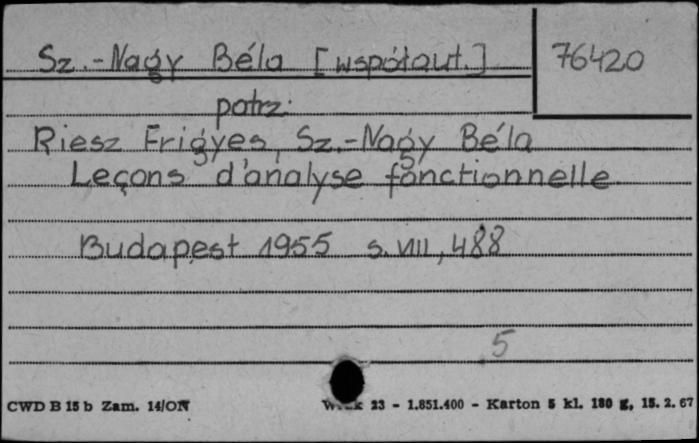 Sz.-Nagy Béla [współaut.] 76420
patrz:
Riesz Frigyes, Sz.-Nagy Béla
Leçons d'analyse fonctionnelle
Budapest 1955 s. VIII, 488
5
CWD B 15 b Zam. 14/ON 23 - 1.851.400 - Karton 5 kl. 180 g, 15. 2. 67